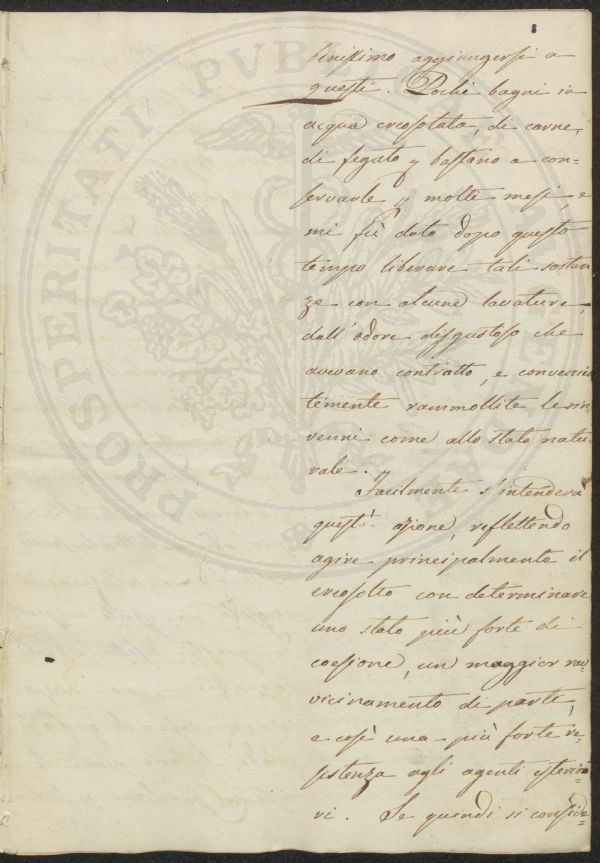 8
benissimo aggiungersi a
questi. Pochi bagni in
acqua creosotata, di carne,
di fegato bastano a con=
servarle molti mesi, e
mi fù dato dopo questo
tempo liberare tali sostan
ze con alcune lavature,
dall'odore disgustoso che
avevano contratto, e convenien
temente rammollite le rin=
venni come allo stato natu=
rale.
Facilmente s'intenderà
questa azione, reflettendo
agire principalmente il
creosoto con determinare
uno stato più forte di
coesione, un maggior rav
vicinamento di parte,
e così una più forte re=
sistenza agli agenti esterio
ri. Se quindi si conside=
PROSPERITATI PUBLICAE